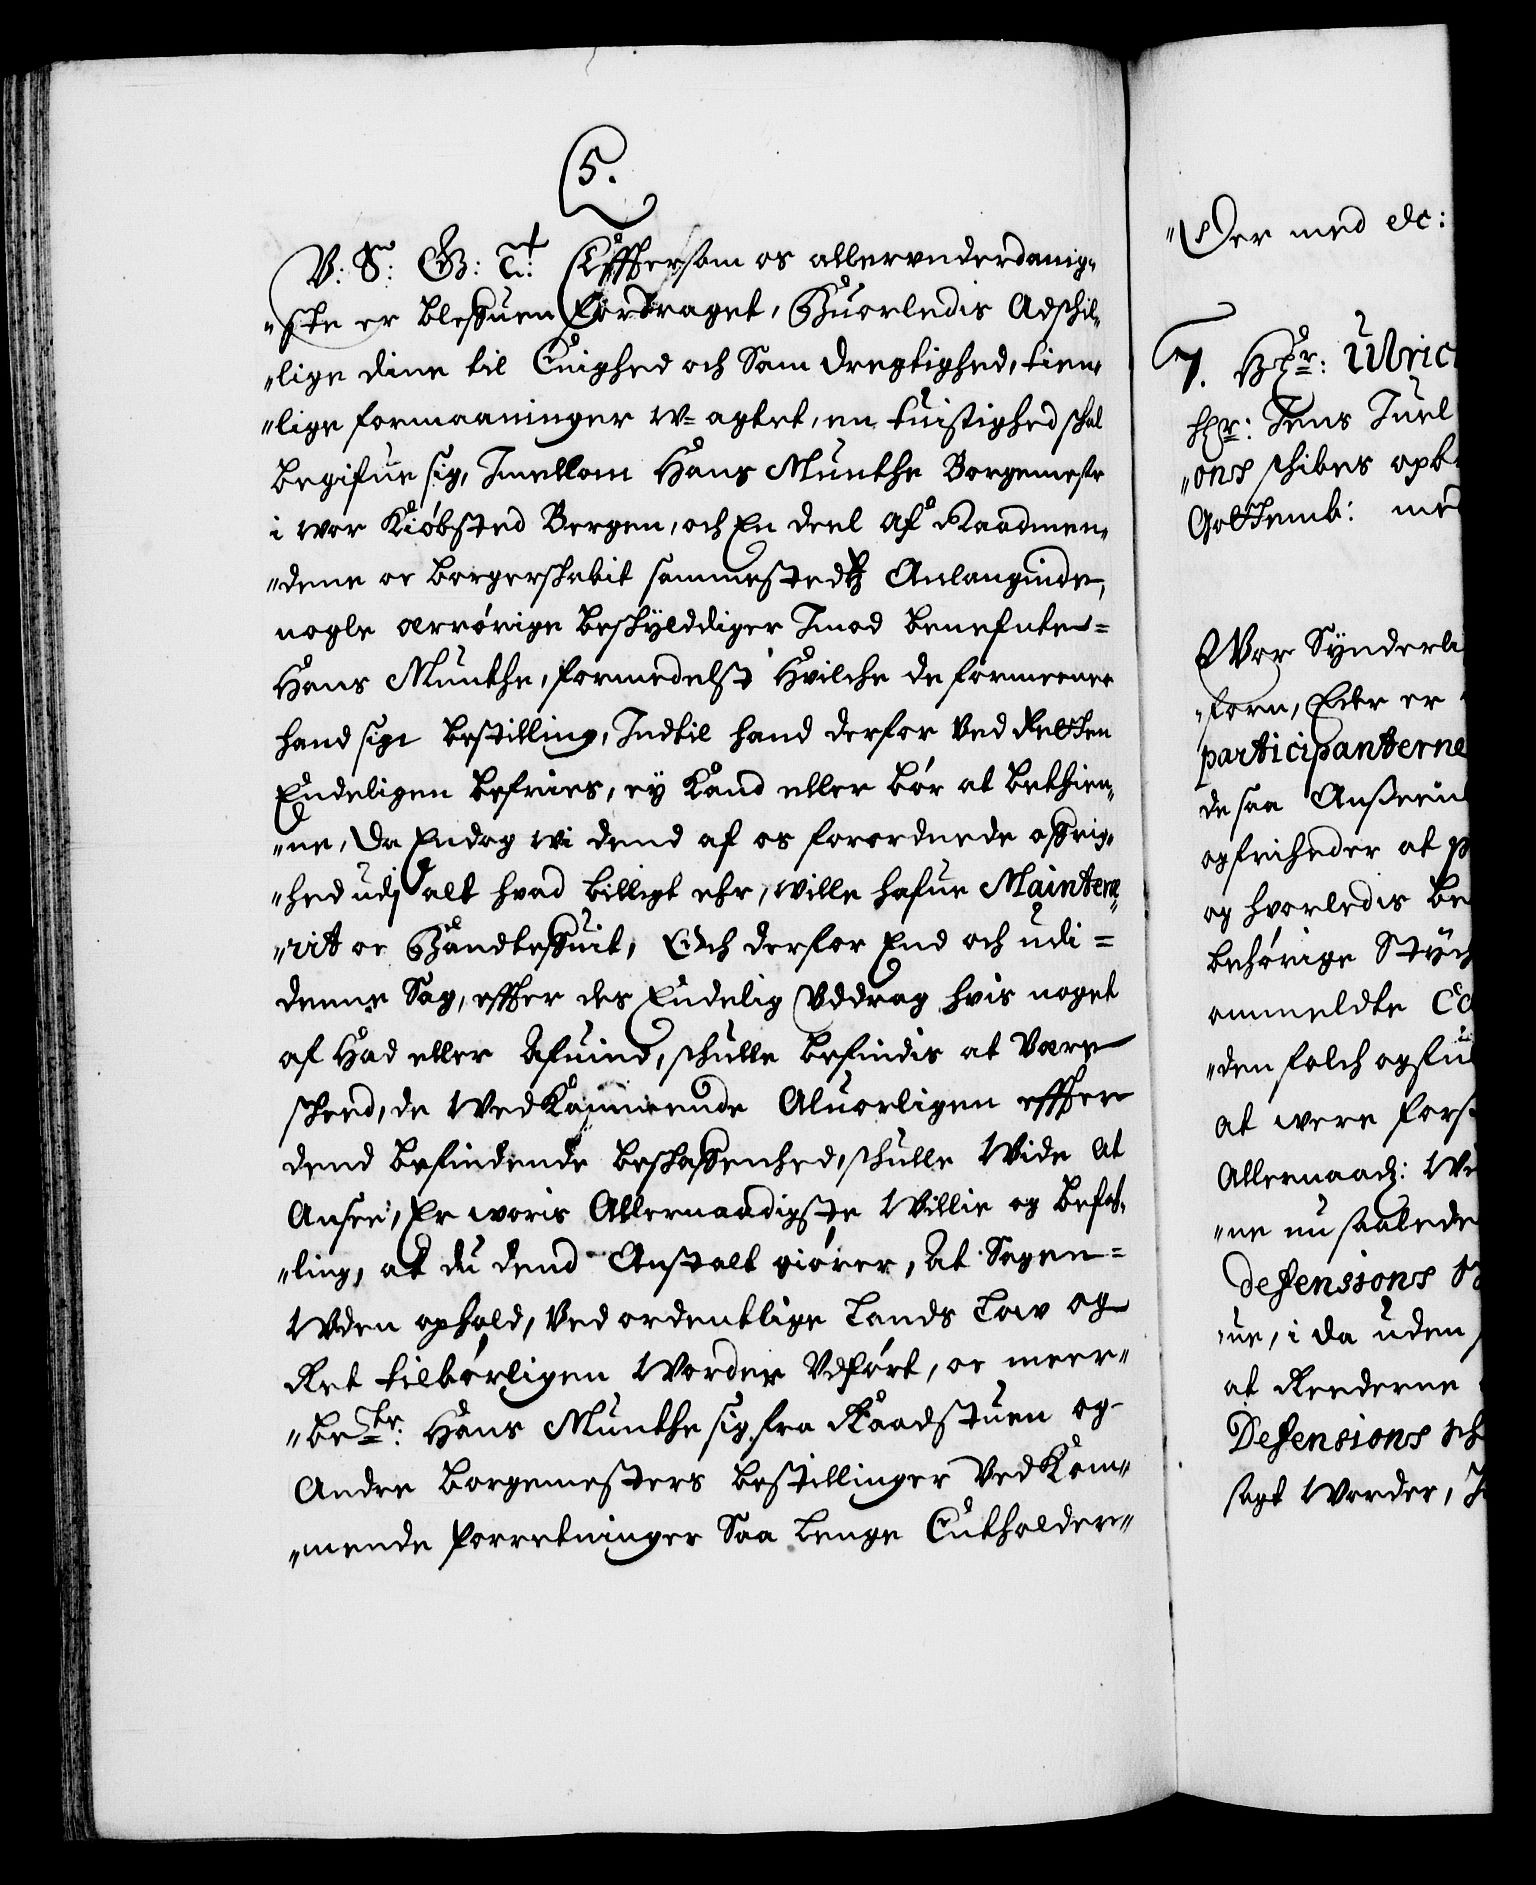 5.
V: S: G: T: Effter som os allervnderdanig„
„ste er bleffuen fordraget, Huorledis Adschil„
„lige dine til Enighed och Sam dregtighed, tien„
„lige formaaninger W= agtet, en tuistighed schal
begifue sig, Imellom Hans Munthe Borgemestr
i wor Kiøbsted Bergen, och En deel af Raadmen„
„dene oc borgerschabit sammestedtz Anlangende,
nogle ærrørige beschÿlddiger Imod benefnte=
Hans Munthe, formedelst Hvilche de formeener
hand sige bestilling, Indtil hand derfor Ved Retten
Endeligen befries, eÿ Kand eller bør at bethien„
„ne, Da Endog wi dend af os forordnede offrig„
„hed udj alt hvad billigt ehr, wille hafue Maintene„
„rit oc Handteffuit, Och derfor End och udi=
denne Sag, effter des Endelig Vddrag hvis noget
af Had eller Afuind, schulle befindis at Være
scheed, de Wed Kommende Aluorligen effter
dend befindende beschaffenhed, schulle Wide at
Ansee, Er woris Allernaadigste Willie og befal„
„ling, at du dend Anstalt giører, at Sagen=
Wden ophold, Ved ordentlige Lands Low og
Ret tilbørligen Worder Vdført, oc meer„
„be<sup>te</sup>: Hans Munthe sig fra Raadstuen og
Andre borgemesters bestillinger Ved Kom„
„mende forretninger Saa lenge Entholder„
„Der med etc:
7. H<sup>r</sup>: Ulric
H<sup>r</sup>: Jens Juel
„ons schibes opb
Gottenb: med
Wor Sÿnderli
„forn, Eder er
participanterne
de saa Anseen
og friheder at p
og hvorledis be
behørige Stÿch
ommeldte Co
„den folch og fu
at were forst
Allernaadg: Wi
„ne nu saalede
defensions s
„ue, i da uden
at Reederne
Defensions sch
sagt Worder, I